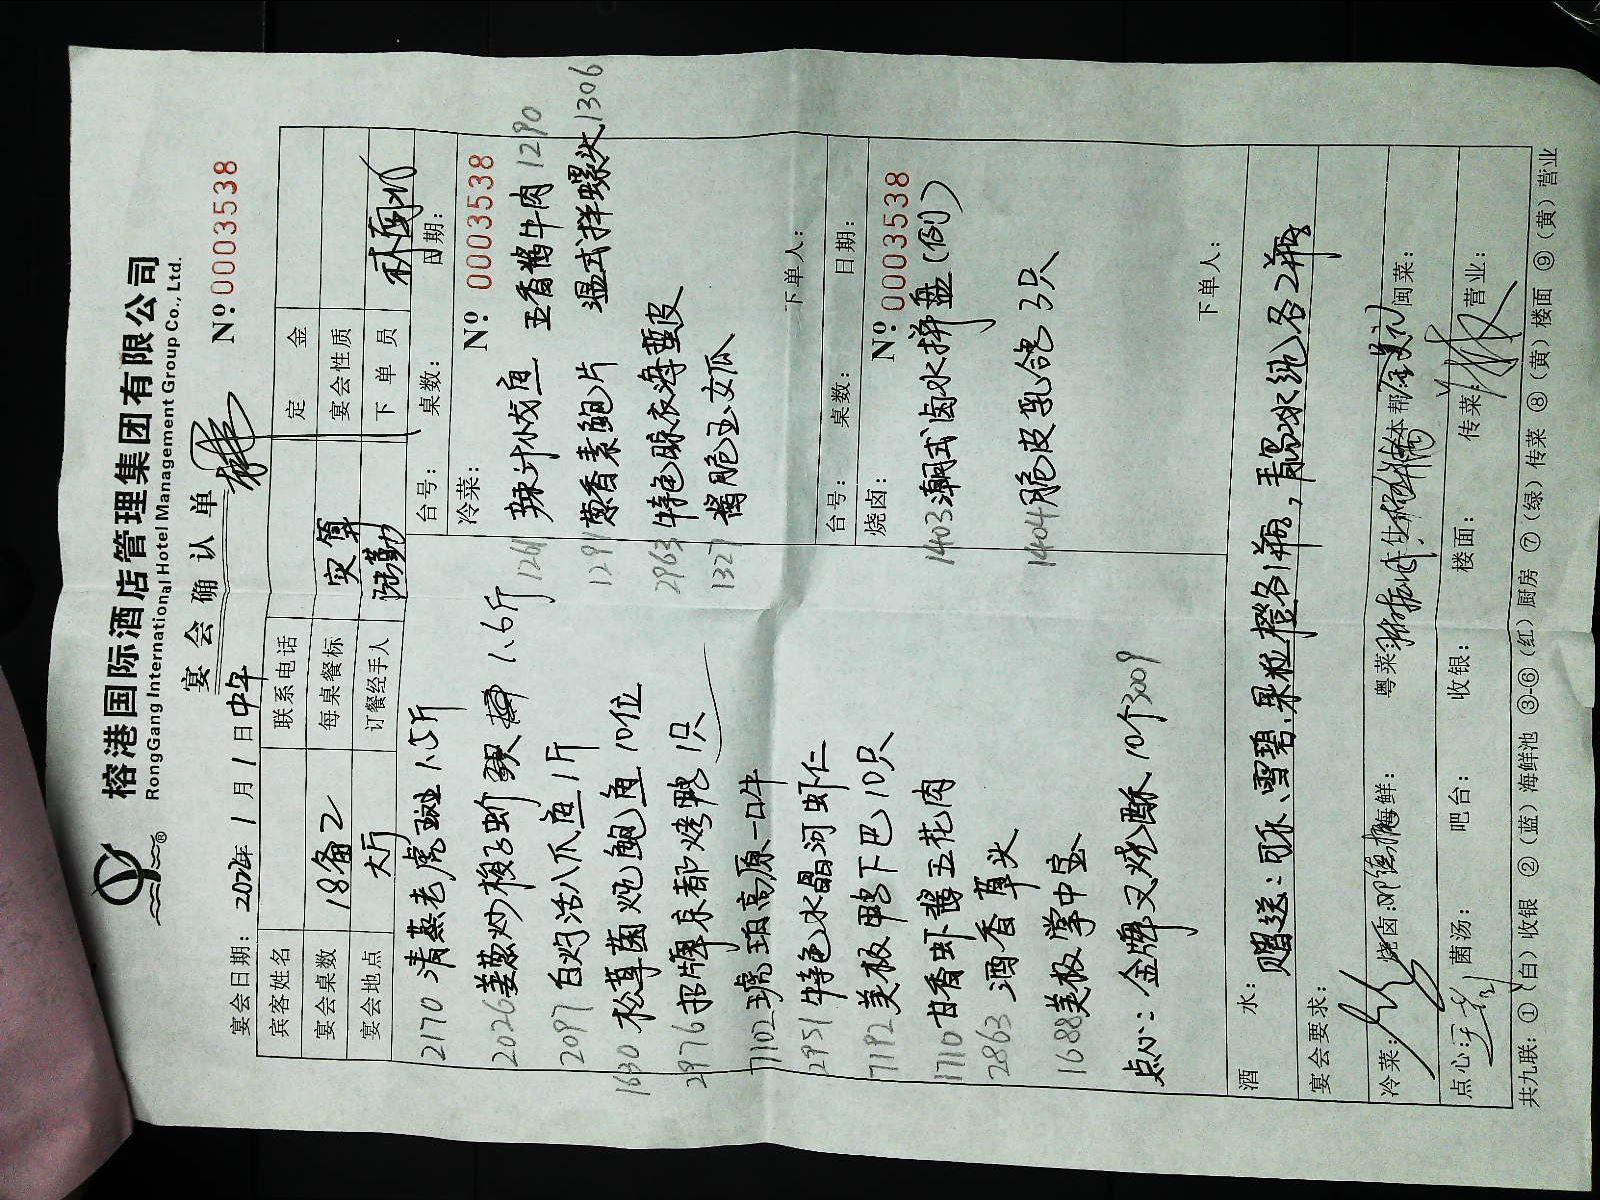 榕港国际酒店管理集团有限公司
RongGang International Hotel Management Group Co., Ltd.
宴会确认单
宴会日期: 2024年1月1日中午 Nº 0003538
宾客姓名 联系电话 定金
宴会桌数 18备2 每桌餐标 实算 宴会性质
宴会地点 大厅 订餐经手人 下单员
2170 清蒸老虎斑 1.5斤
2026 姜葱炒梭子蟹 1.6斤
2097 白灼活八爪鱼1斤
1630 松茸菌炖鲍鱼10位
2976 招牌京都烤鸭1只
7102 琥珀高原一口牛
2951 特色水晶河虾仁
7192 美极鸭下巴10只
1710 甘香虾酱五花肉
2863 酒香草头
1688 美极掌中宝
点心: 金牌叉烧酥10个3009
台号: 桌数: 日期:
冷菜: Nº 0003538
1261 辣汁小黄鱼 五香酱牛肉 1290
1291 葱香素鲍片 温式拌螺头 1306
2963 特色麻衣海蜇皮
1327 酱脆玉女瓜
下单人:
台号: 桌数: 日期:
烧卤: Nº 0003538
1403 潮式卤水拼盘(例)
1404 脆皮乳鸽3只
下单人:
酒水: 赠送: 可乐、雪碧.果粒橙各1瓶,青岛冰纯各2瓶
宴会要求:
冷菜: 烧卤: 海鲜: 粤菜: 本帮: 闽菜:
点心: 菌汤: 吧台: 收银: 楼面: 传菜: 营业:
共九联: ①(白)收银 ②(蓝)海鲜池 ③-⑥(红)厨房 ⑦(绿)传菜 ⑧(黄)楼面 ⑨(黄)营业